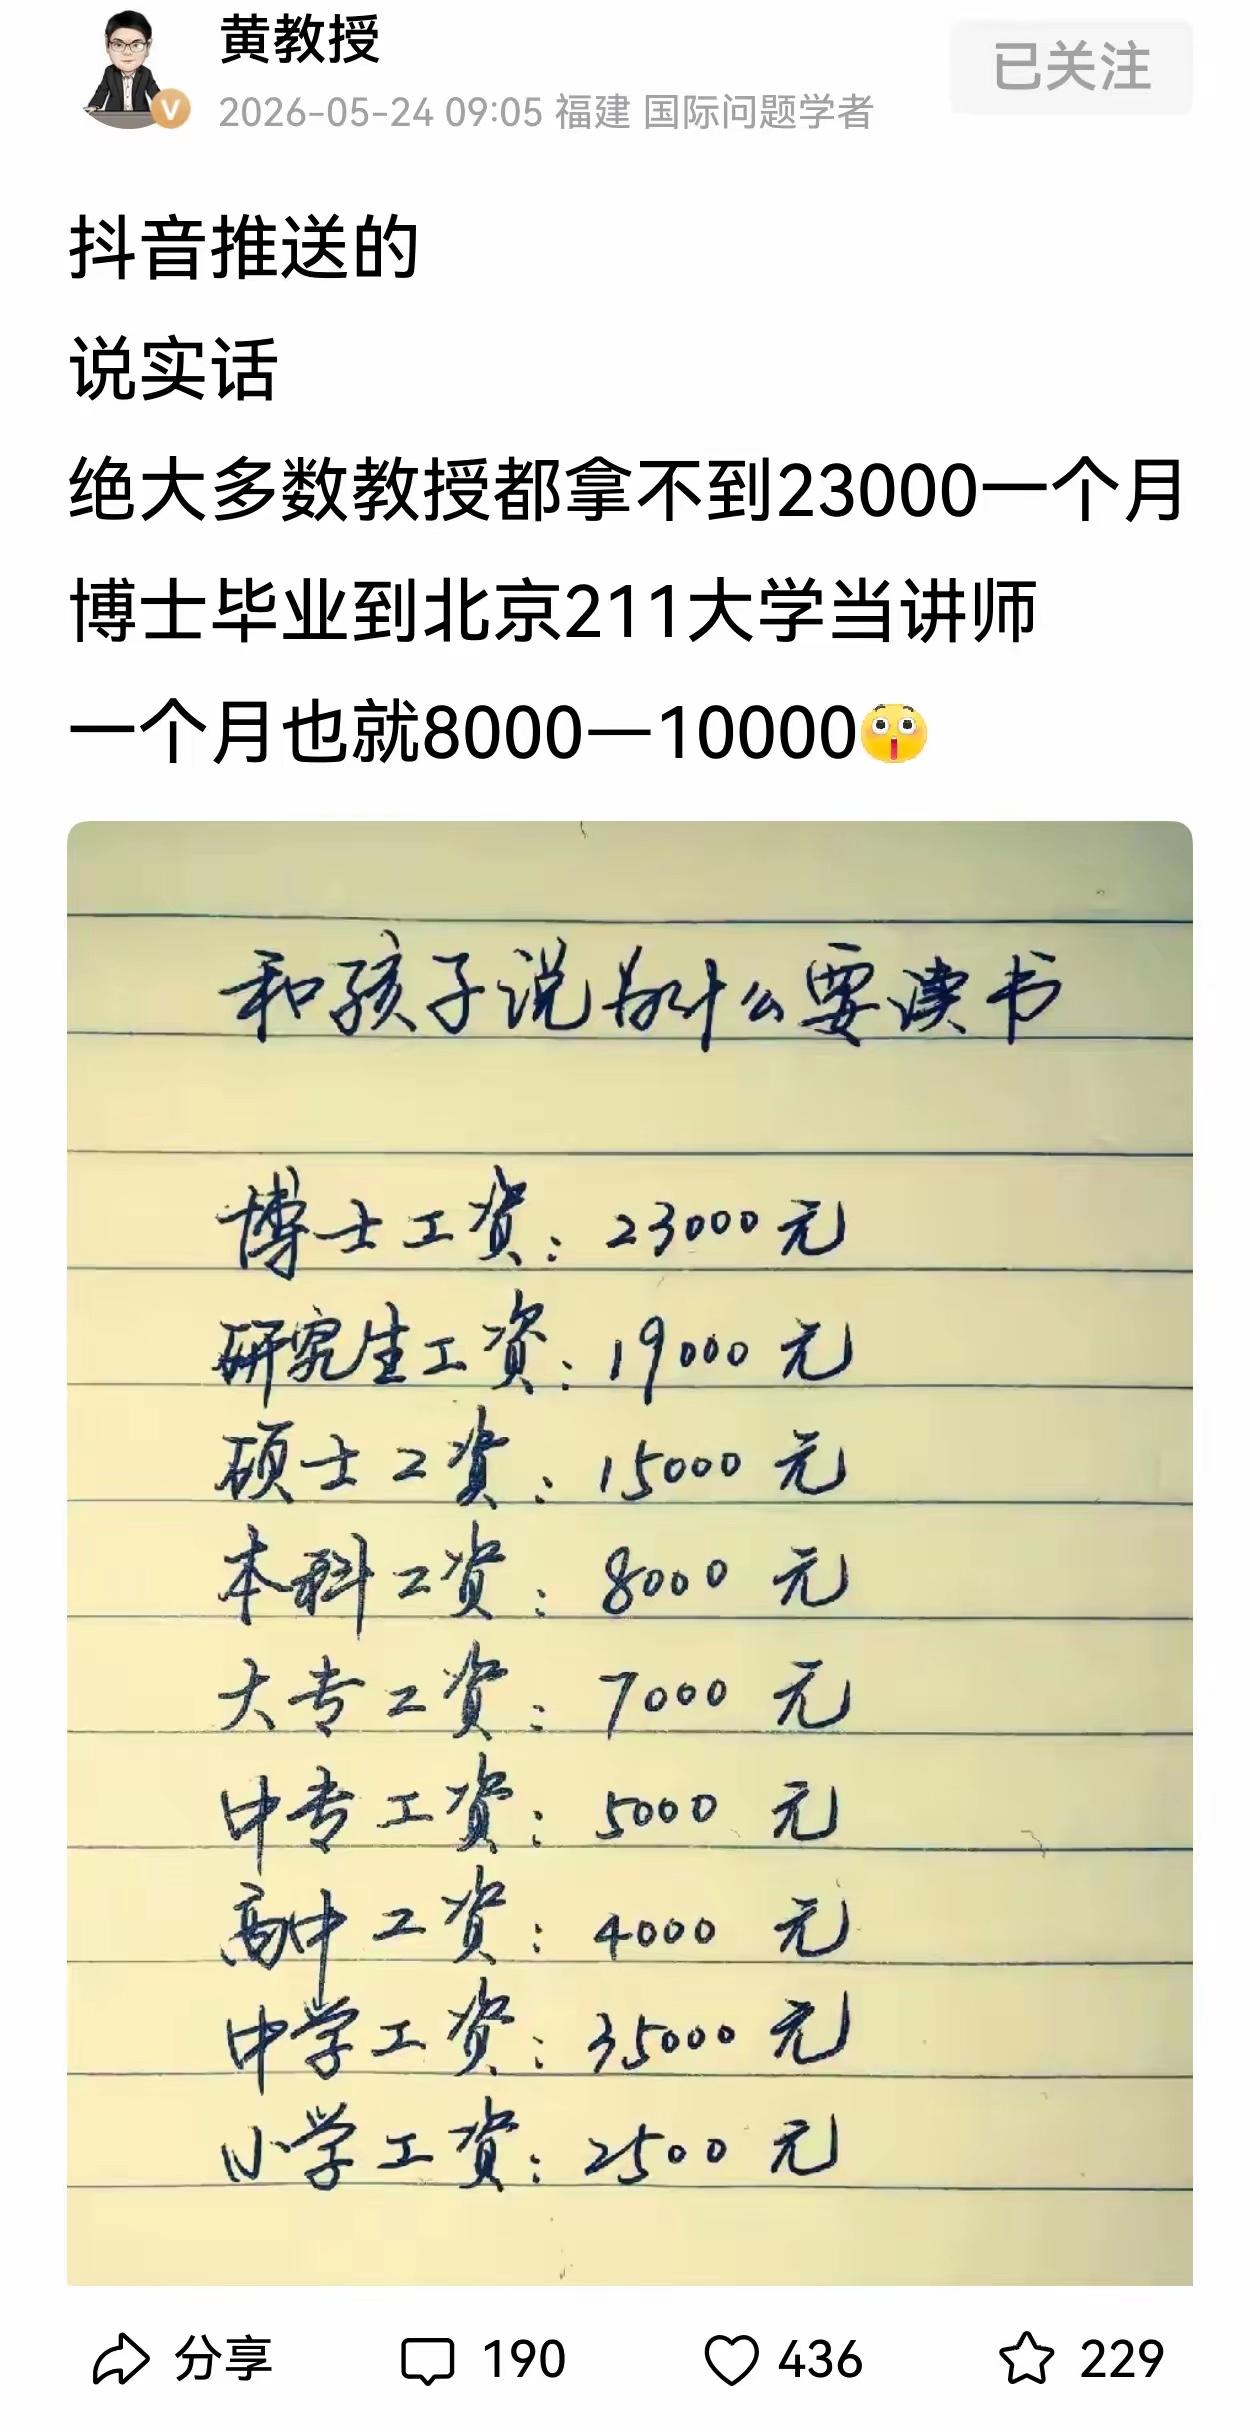 黄教授
已关注
2026-05-24 09:05 福建 国际问题学者
抖音推送的
说实话
绝大多数教授都拿不到23000一个月
博士毕业到北京211大学当讲师
一个月也就8000一10000😲
和孩子说为什么要读书
博士工资：23000元
研究生工资：19000元
硕士工资：15000元
本科工资：8000元
大专工资：7000元
中专工资：5000元
高中工资：4000元
中学工资：35000元
小学工资：2500元
分享 190 436 229